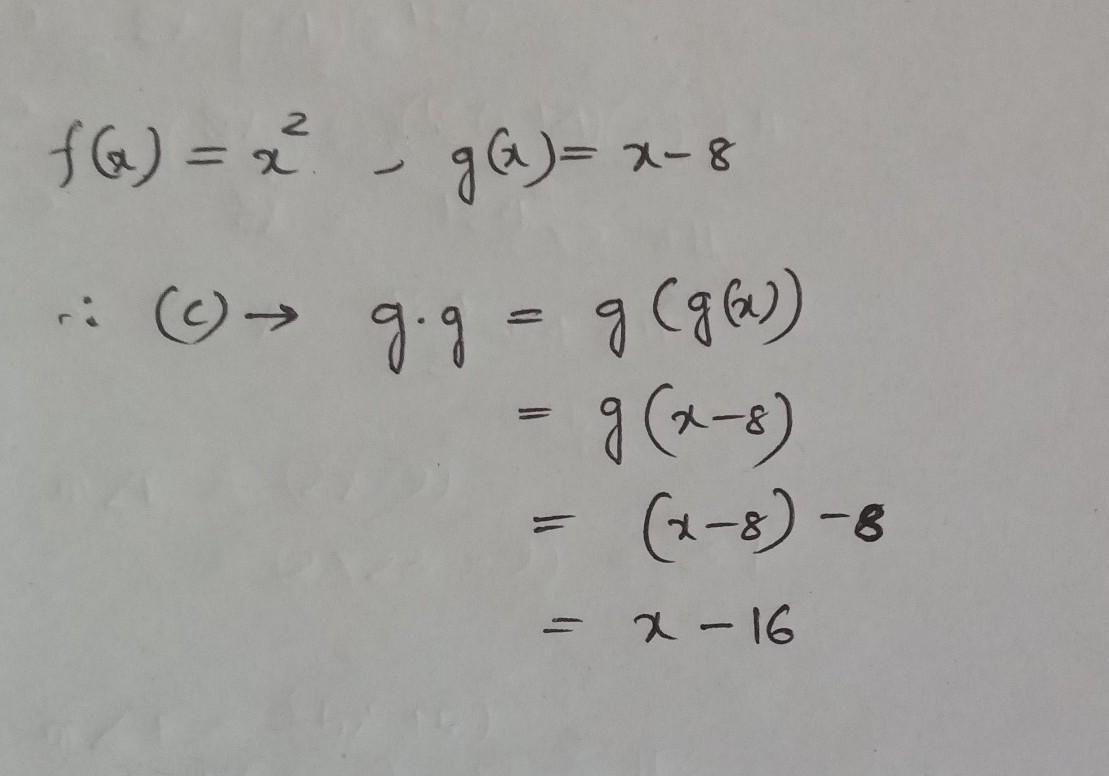 f(x) = x² , g(x) = x - 8
∴ (c) → g·g = g(g(x))
= g(x-8)
= (x-8) -8
= x - 16